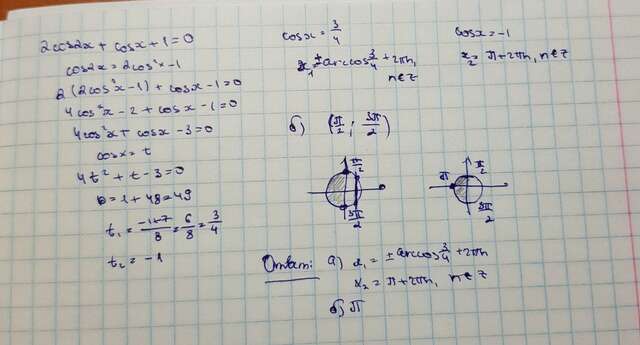 2cos2x + cosx + 1 = 0
cos2x = 2cos²x - 1
2(2cos²x - 1) + cosx - 1 = 0
4cos²x - 2 + cosx - 1 = 0
4cos²x + cosx - 3 = 0
cosx = t
4t² + t - 3 = 0
D = 1 + 48 = 49
t₁ = (-1+7)/8 = 6/8 = 3/4
t₂ = -1
cosx = 3/4
x₁ = ± arccos 3/4 + 2πn,
n∈z
cosx = -1
x₂ = π + 2πn, n∈z
б) (π/2 ; 3π/2)
π/2
3π/2
π
π/2
3π/2
Ответ: а) x₁ = ± arccos 3/4 + 2πn
x₂ = π + 2πn, n∈z
б) π